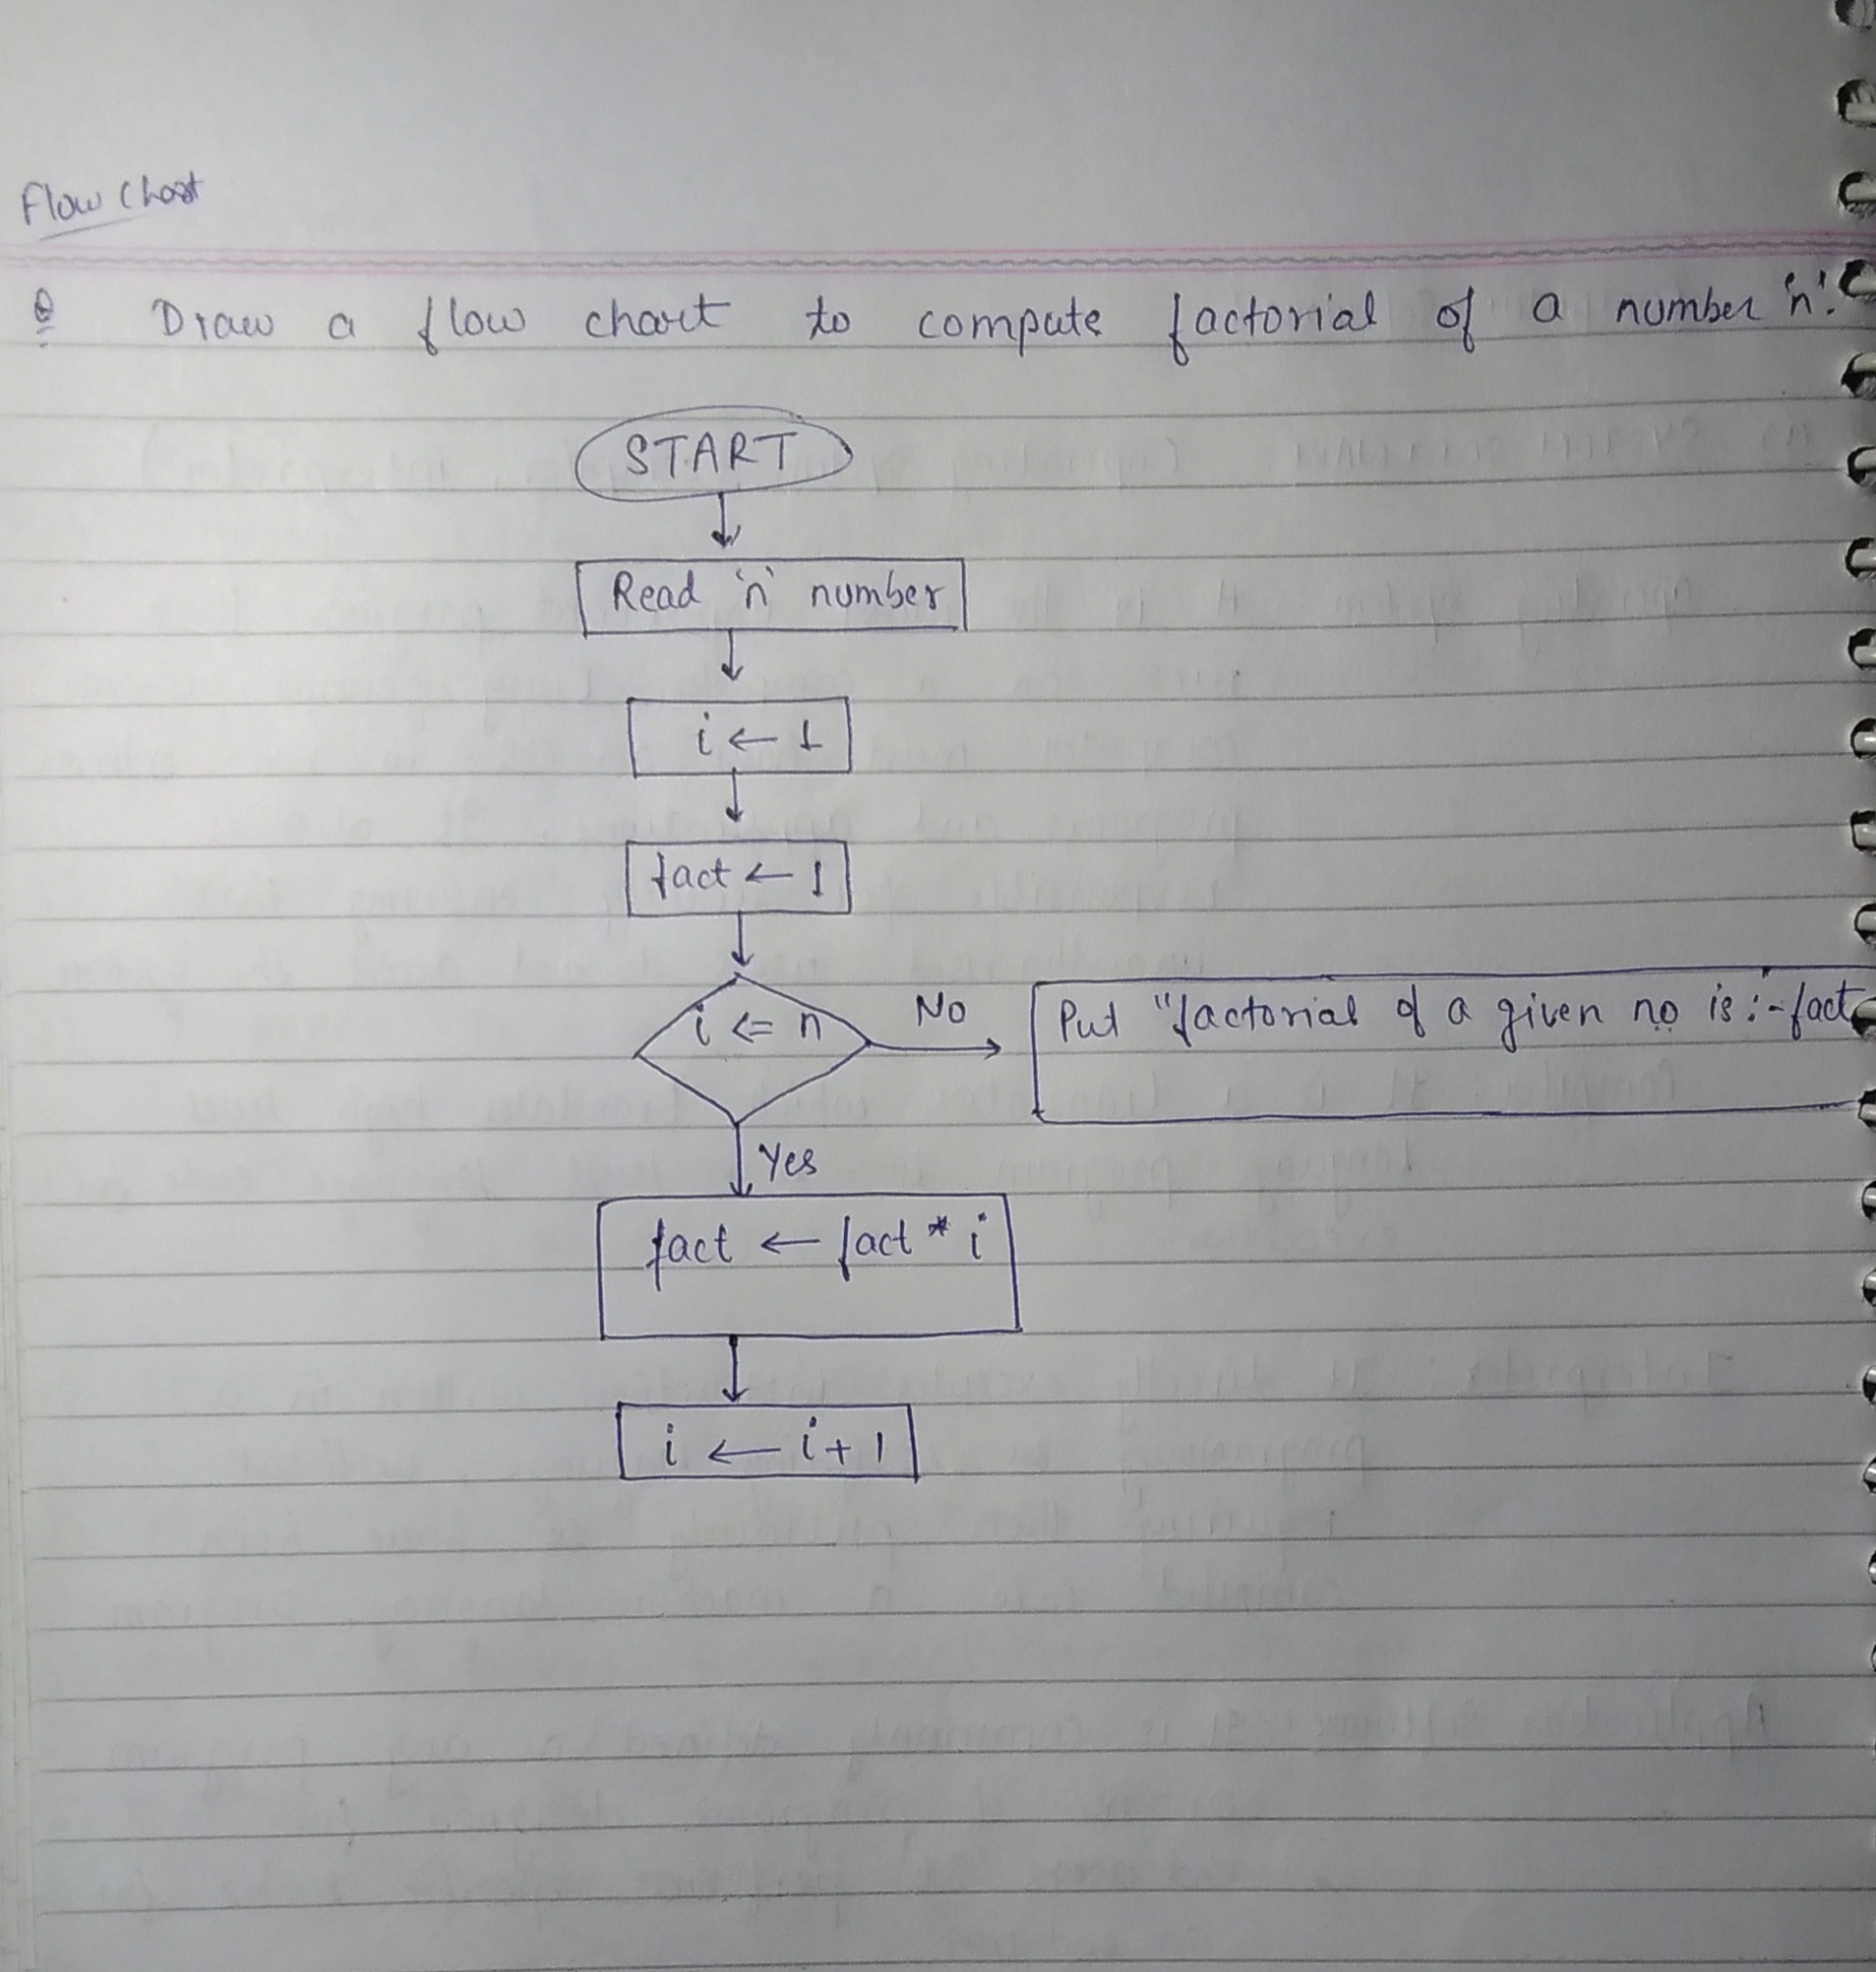 Flow Chart
Q Draw a flow chart to compute factorial of a number 'n'.
START
Read 'n' number
i ← 1
fact ← 1
i <= n
No
Put "factorial of a given no is :- fact
Yes
fact ← fact * i
i ← i + 1